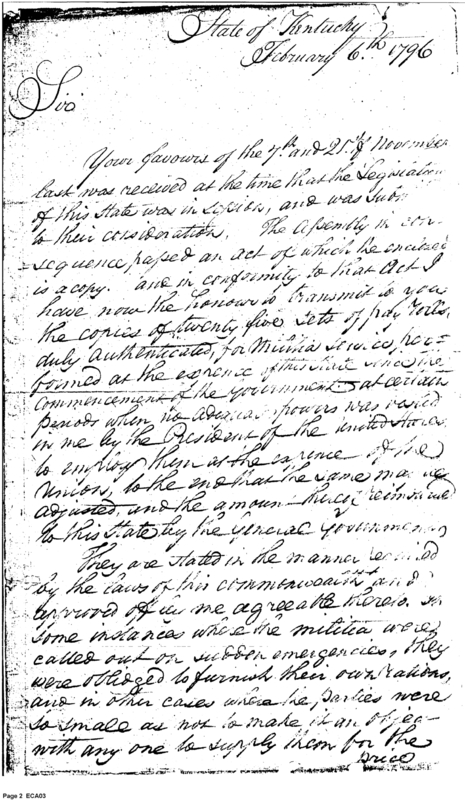 State of Kentucky
February 6.th 1796
Sir
Your favours of the 7.th and 21.st of November
last was received at the time that the Legislature
of this State was in Session, and was
to their consideration. The Assembly in con-
sequence passed an act of which the enclosed
is a copy. and in conformity to that Act I
have now the honour to transmit to you
the copies of twenty five sets of pay rolls,
duly authenticated, for Militia service per-
formed at the expence of this State since the
commencement of the Government at certain
periods when no powers was vested
in me by the President of the United States
to employ them at the expence of the
Union, to the end that the same may be
adjusted and the amount thereof reimbursed
to this State by the General Government
They are stated in the manner required
by the Laws of this commonwealth and
approved of by me agreeable thereto. In
some instances where the militia were
called out on sudden emergencies, they
were obliged to furnish their own rations,
and in other cases where the parties were
so small as not to make it an object
with any one to supply them for the
price
Page 2 ECA03